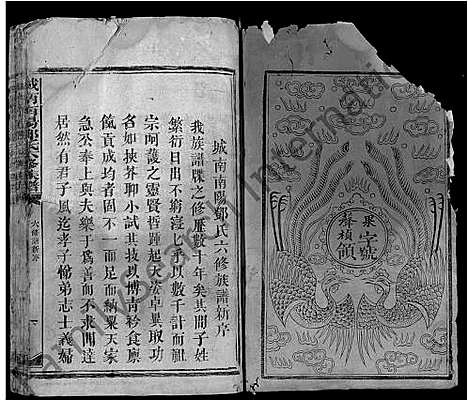 果字號
森楨領
城南南陽鄧氏六修族譜新序
我族譜牒之修歷數十年矣其間子姓
繁衍日出不窮寖乎以數千計而祖
宗呵護之靈賢哲踵起大法卓異取功
名如挾芥聊小試其技以博青衿食廩
餼貢成均者固不一而足而納粟天家
急公奉上與夫樂于為善而不求聞達
居然有君子風迄孝子悌弟志士義婦
六修譜新序